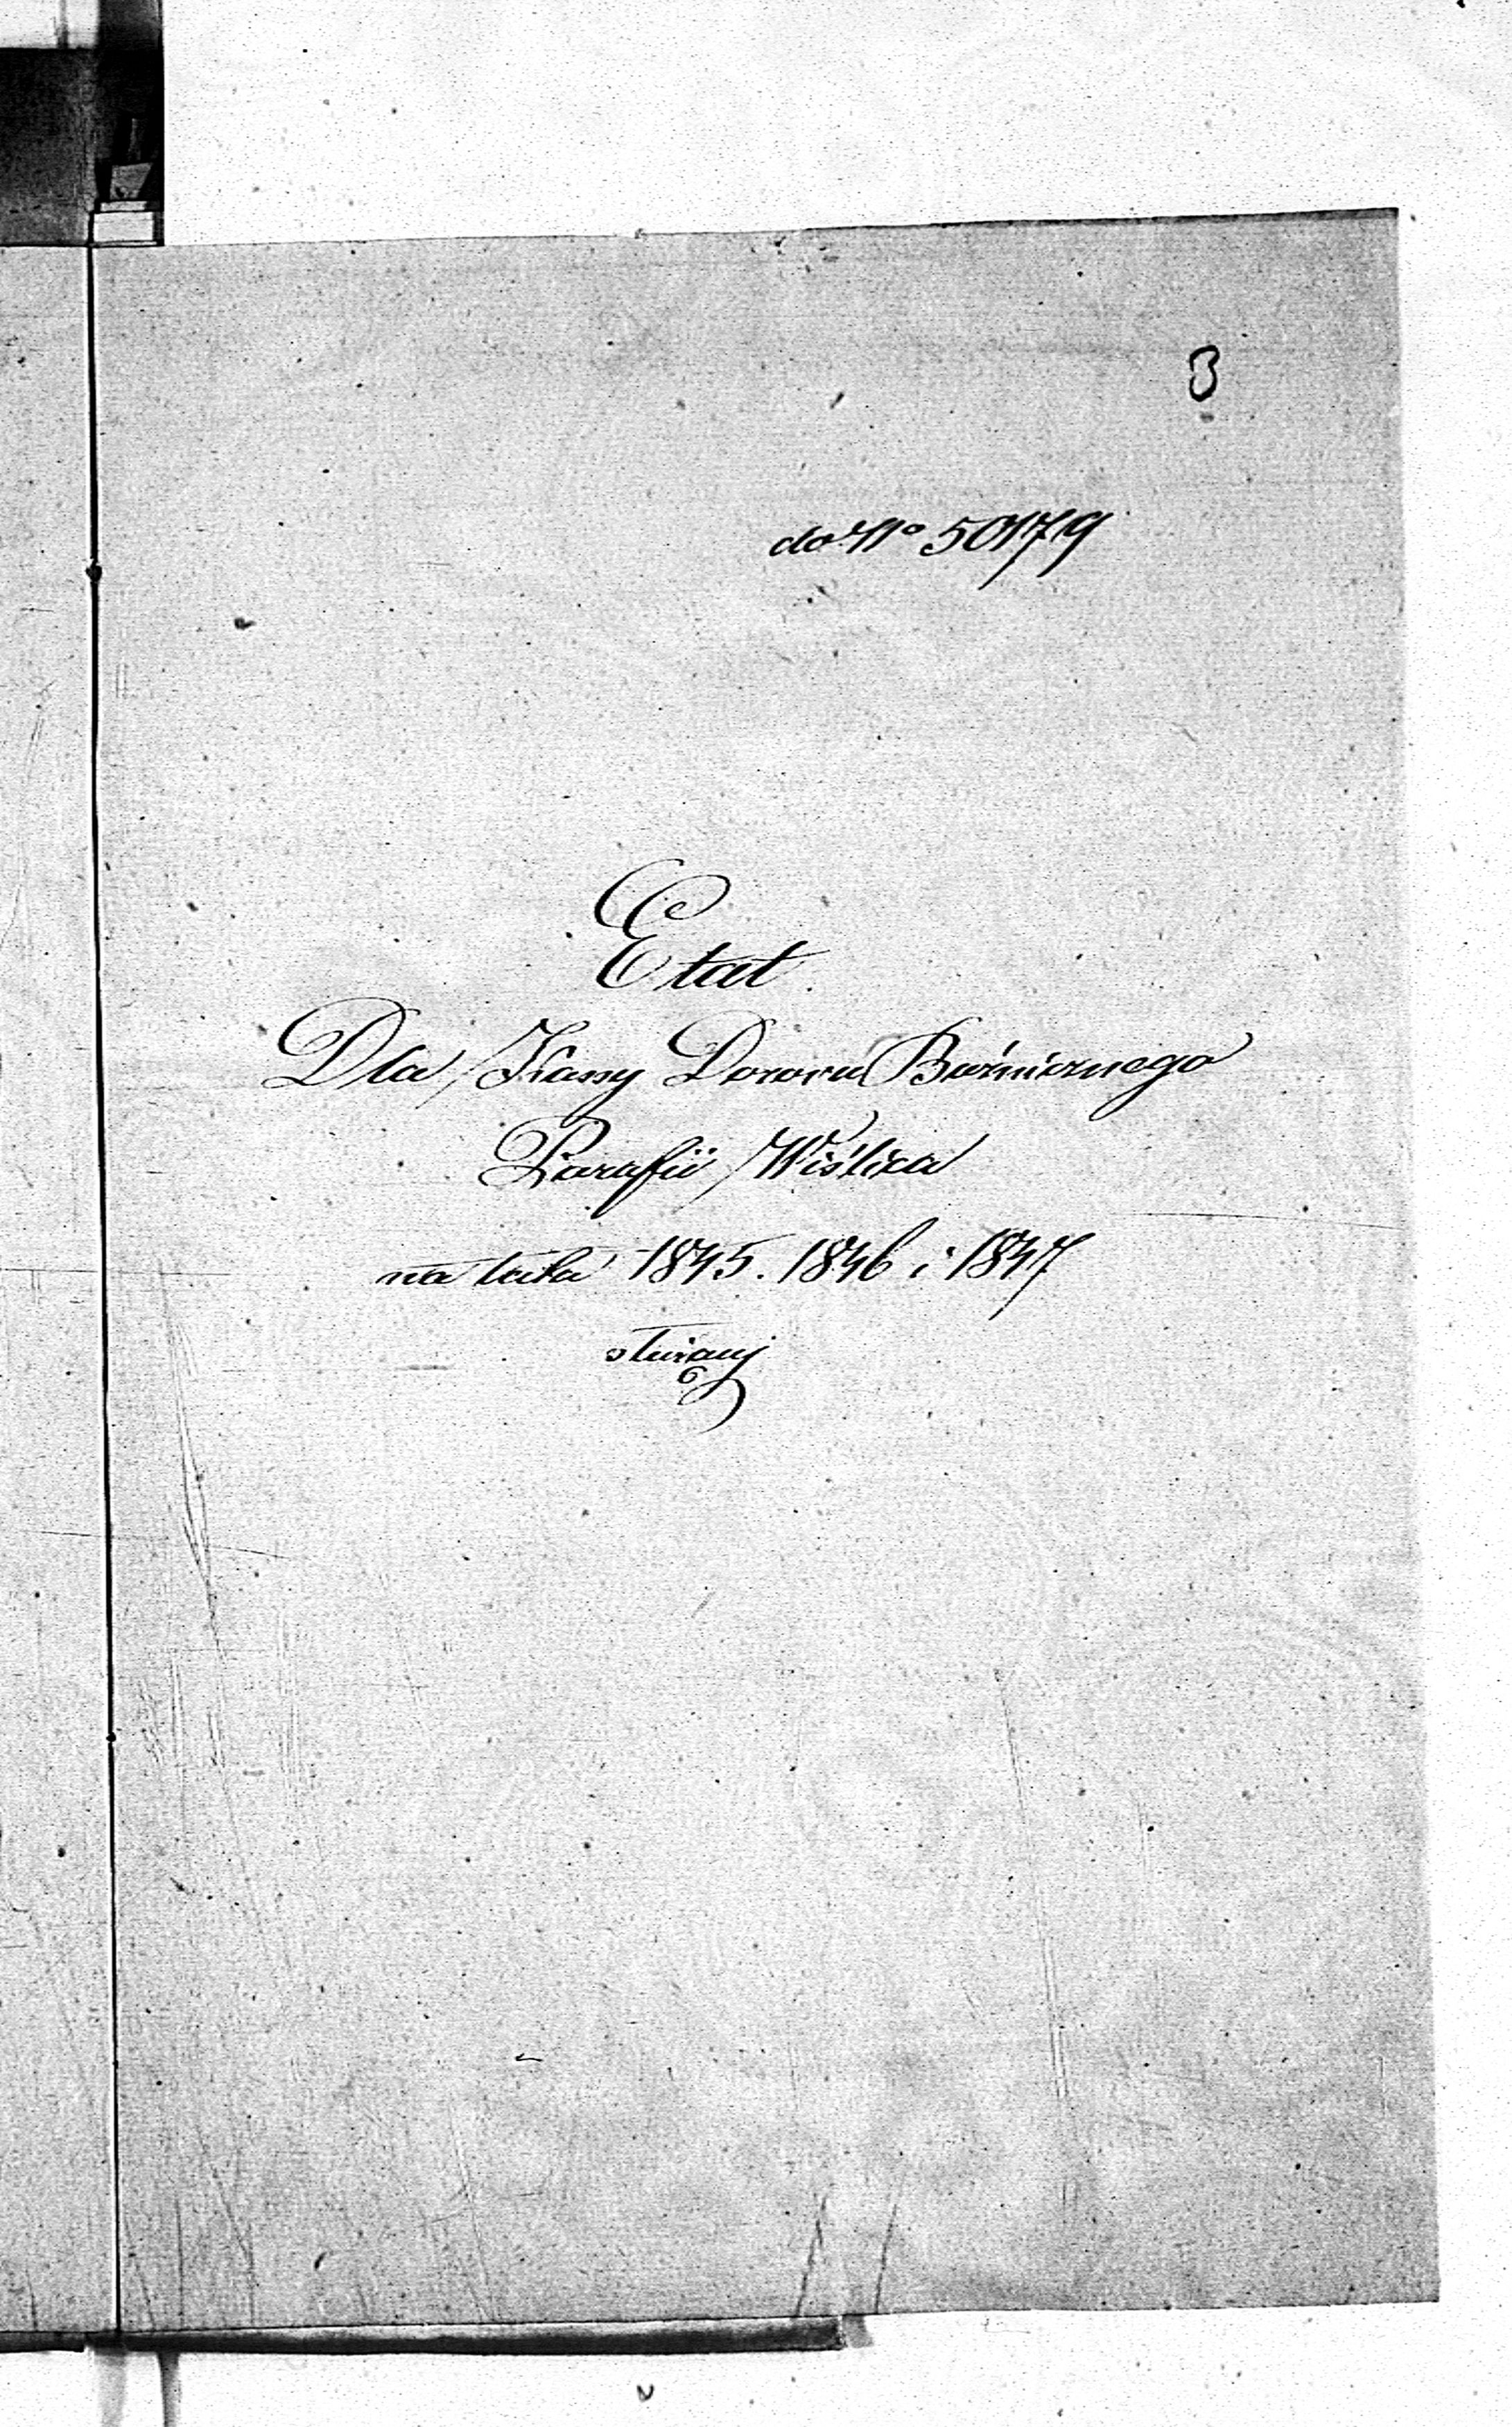 3
do No 50179
Etat
Dla Kassy Dozoru Bóżnicznego
Parafii Wiślica
na lata 1845. 1846 i 1847
służący